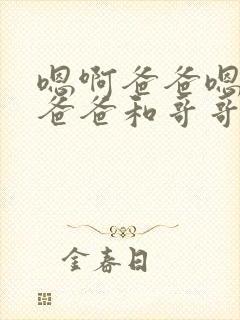 嗯啊爸爸嗯
爸爸和哥哥
金春日